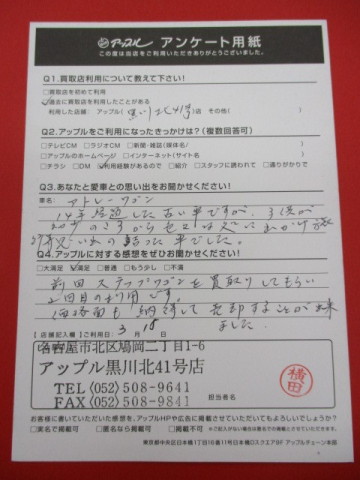 アップル アンケート用紙
この度は当店をご利用いただきありがとうございました。
Q1.買取店利用について教えて下さい!
□買取店を初めて利用
☑過去に買取店を利用したことがある
利用した店舗: アップル( 黒川北41号 )店 その他( )
Q2.アップルをご利用になったきっかけは?(複数回答可)
□テレビCM □ラジオCM □新聞・雑誌(媒体名: )
□アップルのホームページ □インターネット(サイト名 )
□チラシ □DM ☑利用経験があるので □紹介 □スタッフに誘われて □通りがかりで
Q3.あなたと愛車との思い出をお聞かせください!
車名: アトレーワゴン
14年経過した古い車ですが、子供が
のころから
思い入れの詰った車でした。
Q4.アップルに対する感想をぜひお聞かせください!
□大満足 ☑満足 □普通 □もう少し □不満
前回ステップワゴンを買取りしてもらい
2回目の利用です。
価格面も納得して売却することが出来
ました。
【店舗記入欄】ご利用日: 3 18
名古屋市北区鳩岡二丁目1-6
アップル黒川北41号店
TEL(052)508-9641
FAX(052)508-9841
担当者名
横田
お客様に書いていただいた感想を、アップルHPや広告に掲載させていただいてもよろしいでしょうか?
□実名で掲載可 □匿名なら掲載可 □掲載不可 ※ご記入がない場合は匿名での掲載とさせていただきます。
東京都中央区日本橋1丁目16番11号日本橋Dスクエア8F アップルチェーン本部